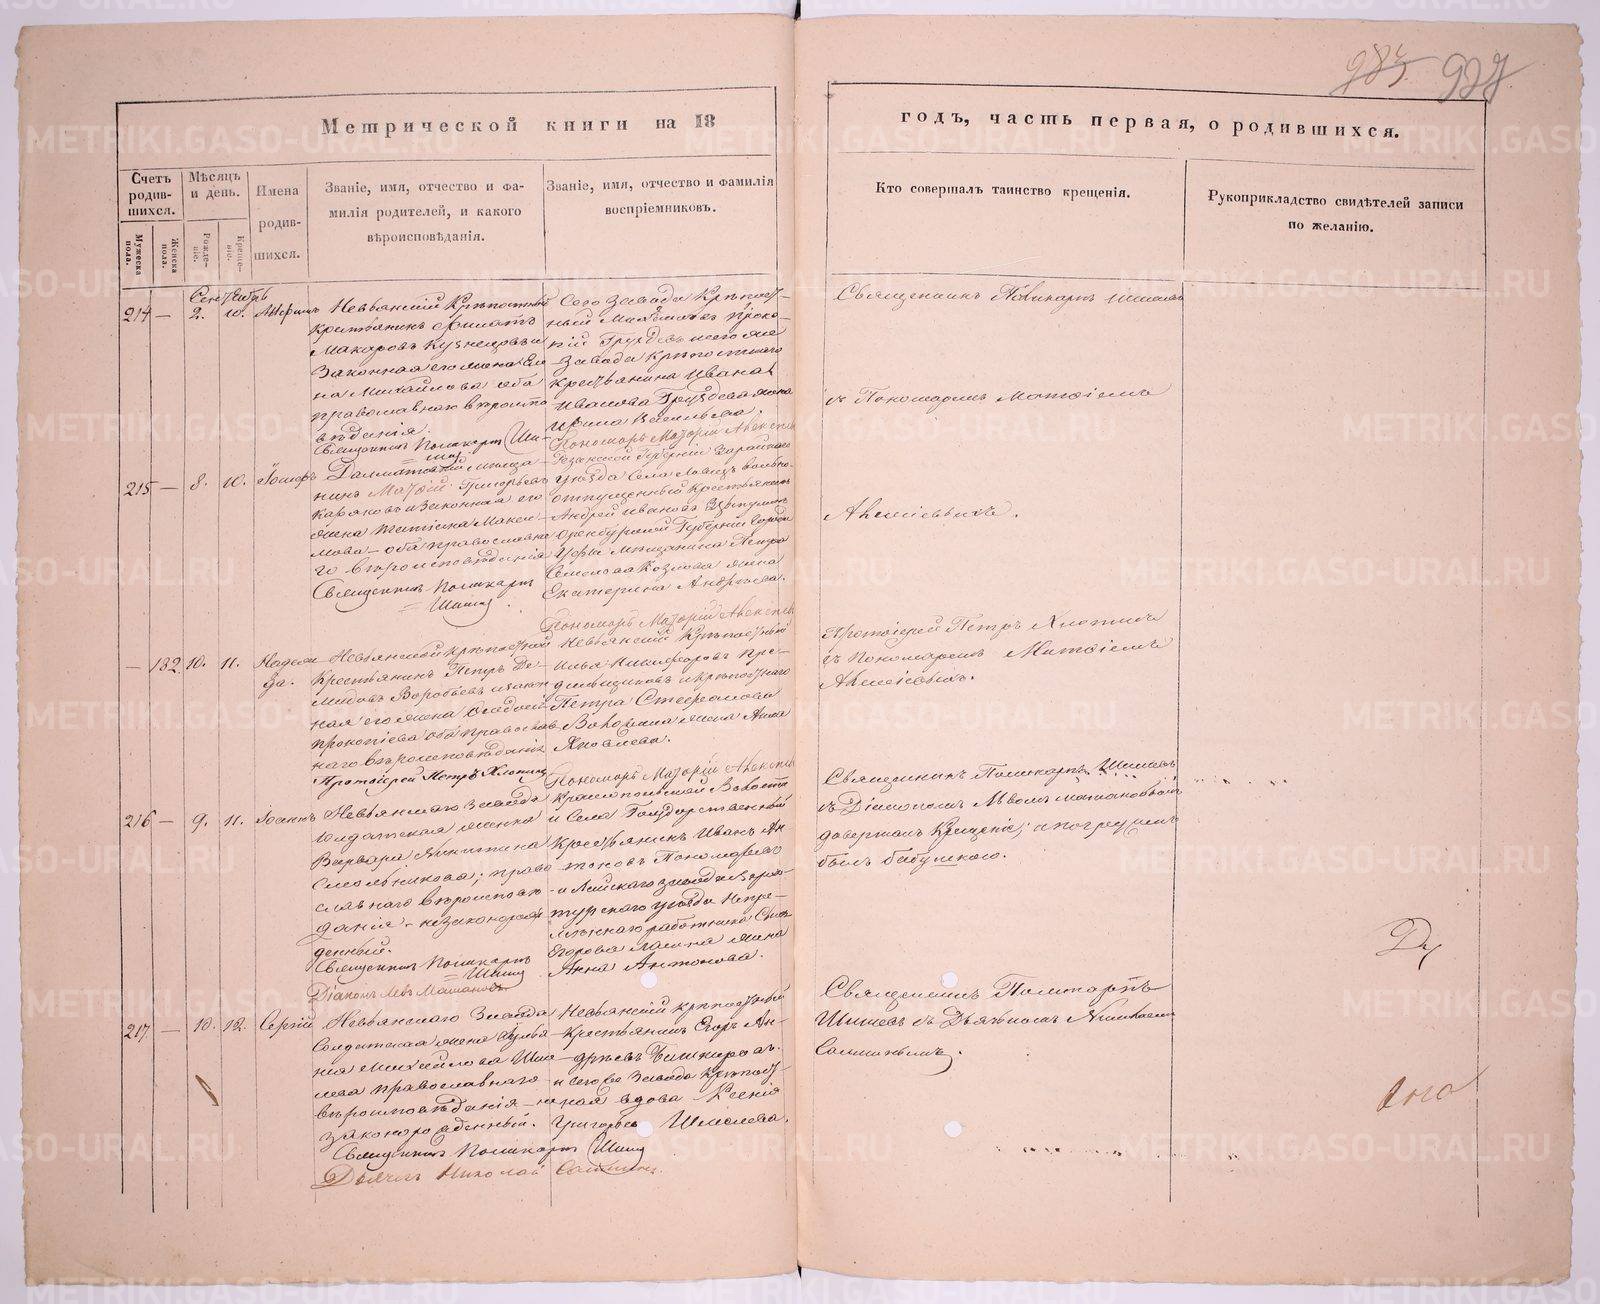 983. 927
Метрической книги на 18
годъ, часть первая, о родившихся.
Счетъ родив-шихся.
Мужеска пола.
Женска пола.
Мѣсяцъ и день.
Рожде-ніе.
Креще-ніе.
Имена родив-шихся.
Званіе, имя, отчество и фа-
милія родителей, и какого
вѣроисповѣданія.
Званіе, имя, отчество и фамилія
воспріемниковъ.
Кто совершалъ таинство крещенія.
Рукоприкладство свидѣтелей записи
по желанію.
Сентябрь
214 — 2. 10.
Невьянскій Крѣпостный
Крестьянинъ Филатъ
Макаровъ Кузнецовъ и
Законная его жена Еле
на Михайлова оба
православнаго вѣроиспо
вѣданія.
Священникъ Поликарпъ Ши-
Сего Завода Крѣпост-
ный Михаилъ Проко-
пій Груздевъ и сего же
Завода крѣпостнаго
крестьянина Ивана
Иванова Груздева жена
Ирина Васильева.
Пономарь Матѳій Алексѣ
Священникъ Поликарпъ Шишевъ
съ Пономаремъ Матѳіемъ
Алексіевымъ.
215 — 8. 10. Іосифъ
Далматовскій мѣща-
нинъ Матѳій Григорьевъ
и законная его
жена Татіана Макси-
мова — оба православна
го вѣроисповѣданія
Священникъ Поликарпъ
Шишевъ.
Рязанской Губерніи Зарайскаго
уѣзда Села Ловецъ вольно-
отпущенный Крестьянинъ
Андрей Ивановъ
Оренбургской Губерніи города
Уфы мѣщанина Петра
Семенова Козлова жена
Екатерина Андреева.
Пономарь Матѳій Алексѣ
— 132 10. 11. Надеж
да.
Невьянской крѣпостной
Крестьянинъ Петръ Де-
мидовъ Воробьевъ и закон
ная его жена Ѳедосія
Прокопіева оба православ
наго вѣроисповѣданія
Протоіерей Петръ Хлопинъ
Невьянскій Крѣпостный
Илья Никифоровъ
и крѣпостнаго
Петра Стефанова
жена Анна
Яковлева.
Пономарь Матѳій Алексѣ
Протоіерей Петръ Хлопинъ
съ Пономаремъ Матѳіемъ
Алексіевымъ.
216 — 9. 11. Іоаннъ
Невьянскаго Завода
Солдатская женка
Варвара Никитина
Смольникова; право
славнаго вѣроисповѣ
данія — незаконорож
денный.
Священникъ Поликарпъ
Шишевъ
Діаконъ Левъ
Краснопольской Волости
и Села Государственный
Крестьянинъ Иванъ Ан
тоновъ Пономаревъ
и Лайскаго завода Верхо-
турскаго уѣзда Непре-
мѣннаго работника
Егорова жена
Анна Антонова.
Священникъ Поликарпъ Шишевъ
съ Діакономъ Львомъ
довершалъ Крещеніе; а погруженъ
былъ бабушкою.
217 — 10. 12. Сергій
Невьянскаго Завода
Солдатская жена Іулiа-
нія Михайлова Шме-
лева православнаго
вѣроисповѣданія — не
законорожденный.
Священникъ Поликарпъ Шишевъ
Дьячекъ Николай
Невьянскій крѣпостный
Крестьянинъ Егоръ Ан-
дреевъ Башкировъ.
и сего же Завода Крѣпост
ная вдова Ксенія
Григорьева Шмелева.
Священникъ Поликарпъ
Шишевъ съ Дьячкомъ Николаемъ